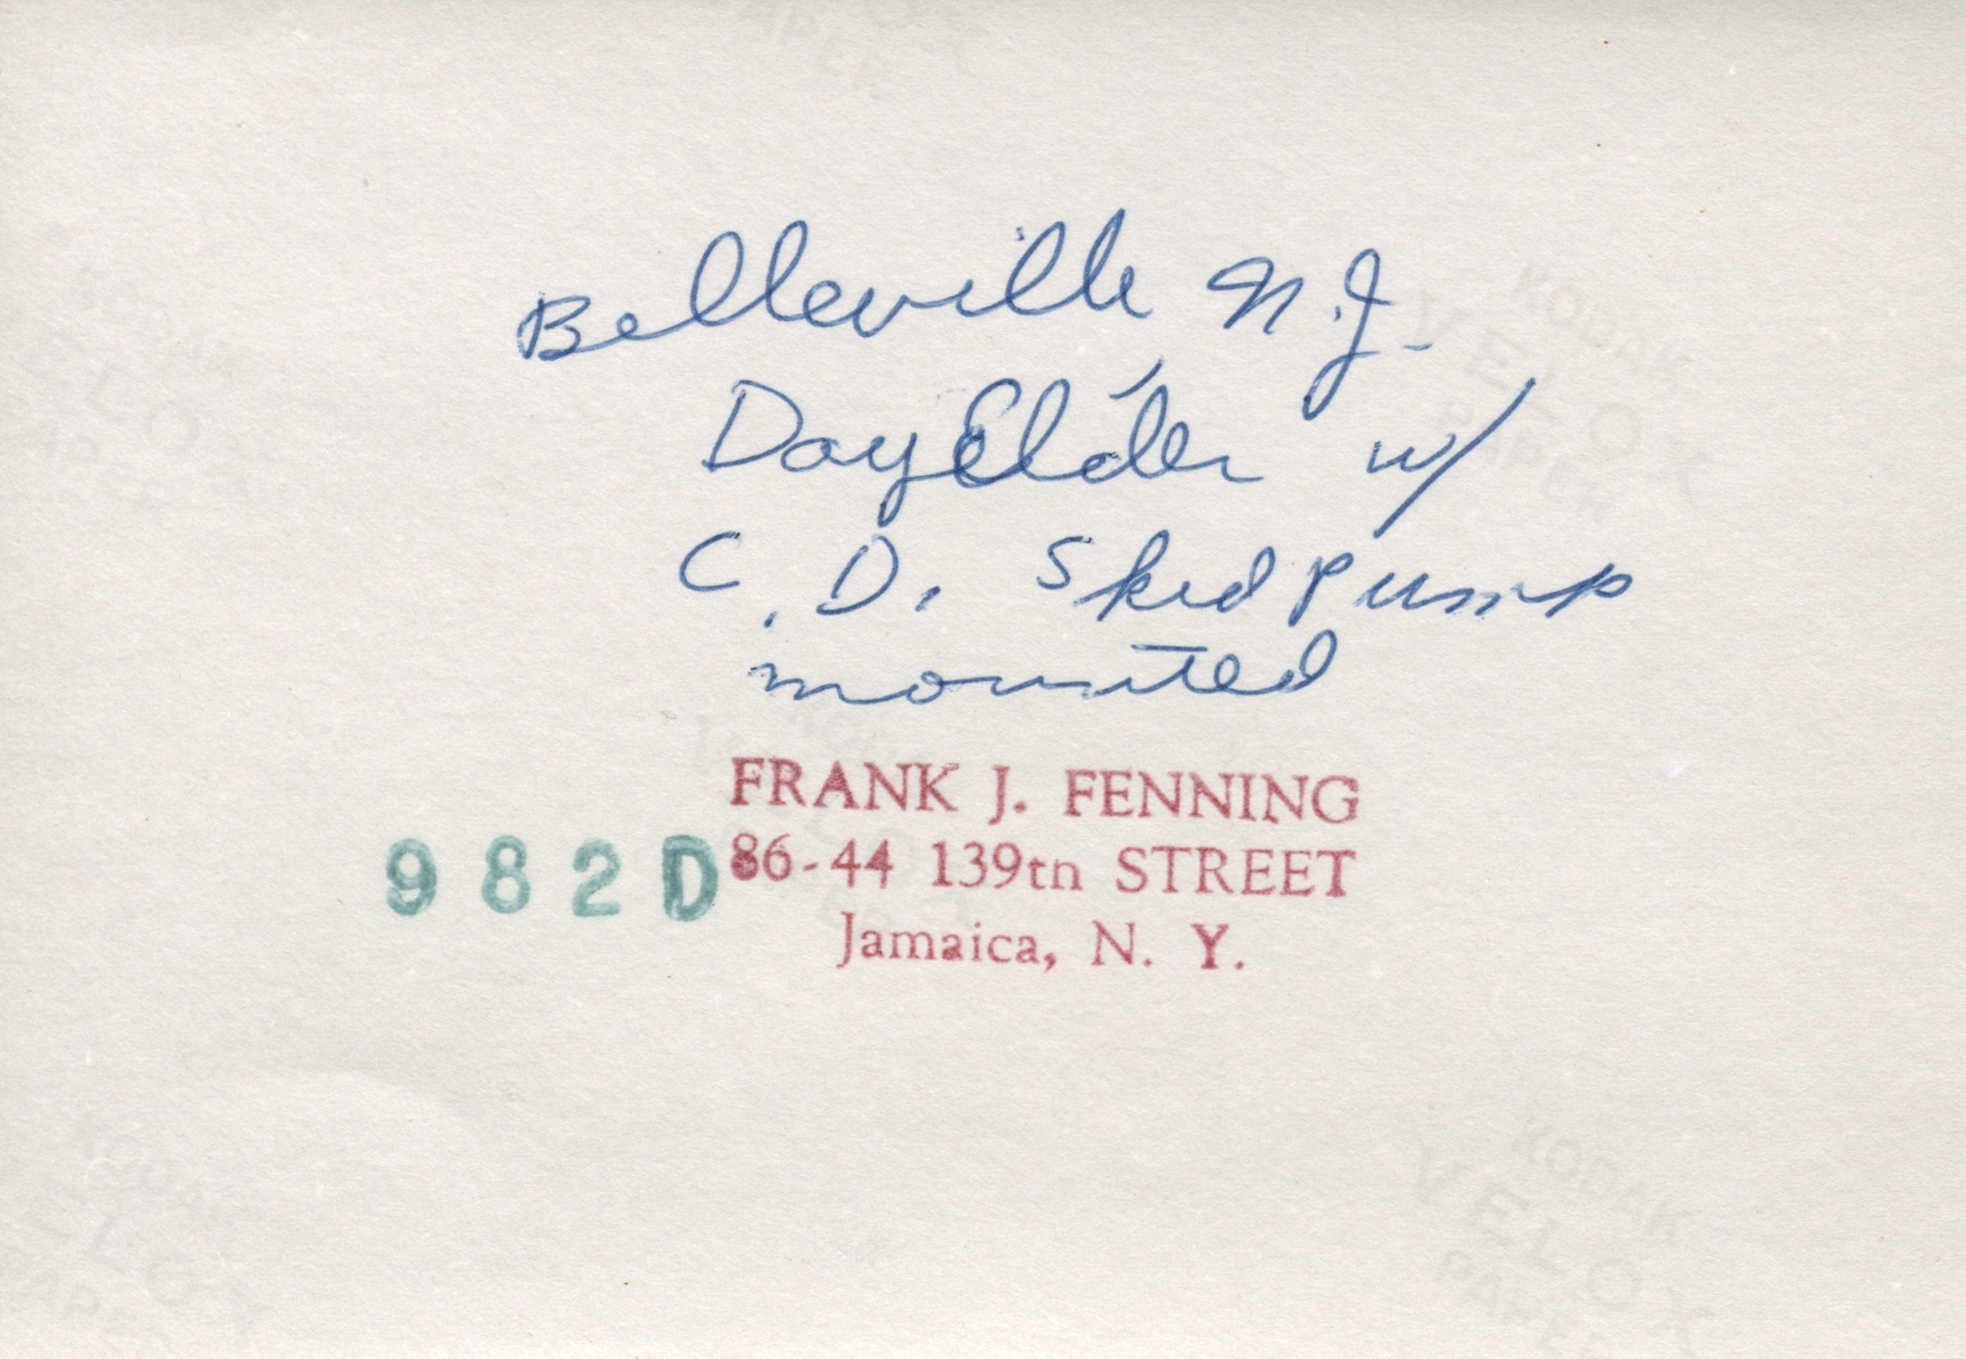 Belleville N.J.
Day Elder w/
C.D. Skid pump
mounted
FRANK J. FENNING
982D 86-44 139th STREET
Jamaica, N. Y.
KODAK
VELOX
PAPER
KODAK
VELOX
PAPER